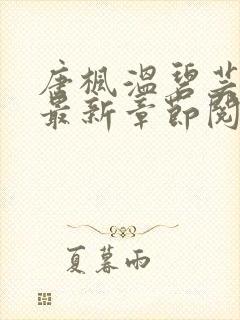 唐枫温碧芸
最新章节阅
夏暮雨